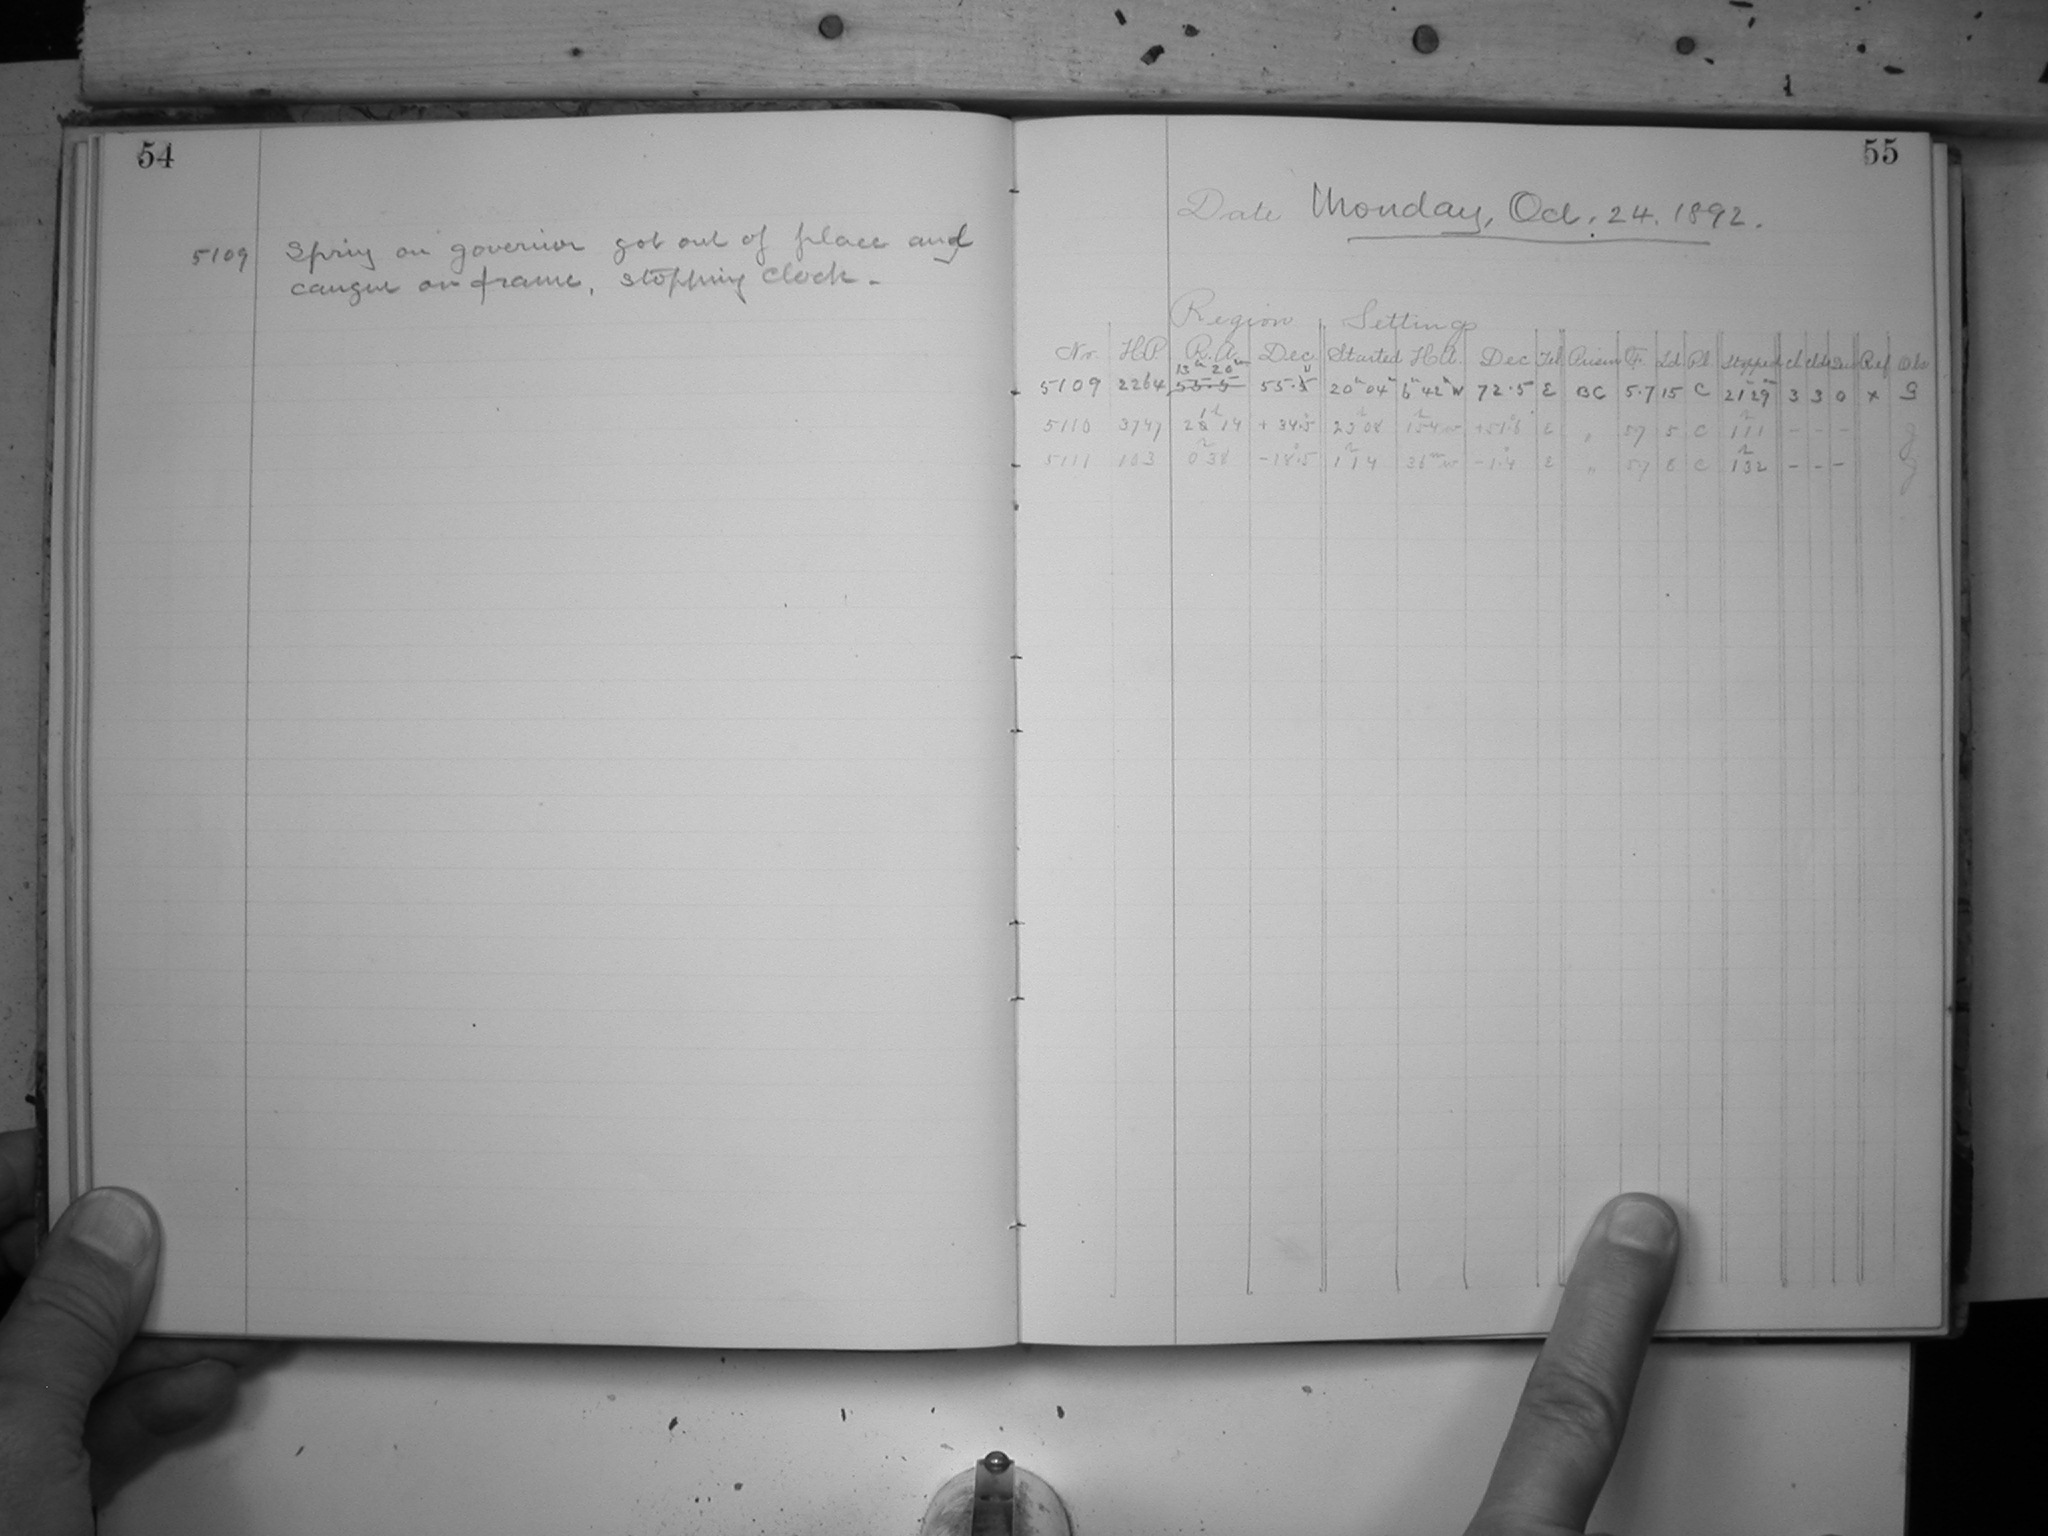 54
5109 Spring on governor got out of place and
caught on frame, stopping clock.
55
Date Monday, Oct. 24. 1892.
Region Settings
No. H.P. R.A. Dec. Started H.A. Dec Tel Prism F. Ld. Pl. Stopped Cl Ref Obs
13h 20m
5109 2264 55.5 55.5 20h 04m 6h 42m W 72.5 E BC 5.7 15 C 21h 29m 3 3 0 x G
5110 3747 +34.5 23h 08 1 54 w +51.8 E " 57 5 C 1h 11 - - - g
5111 103 0h 38 -18.5 1h 14 36m w -1.4 E " 57 8 C 1h 32 - - - g